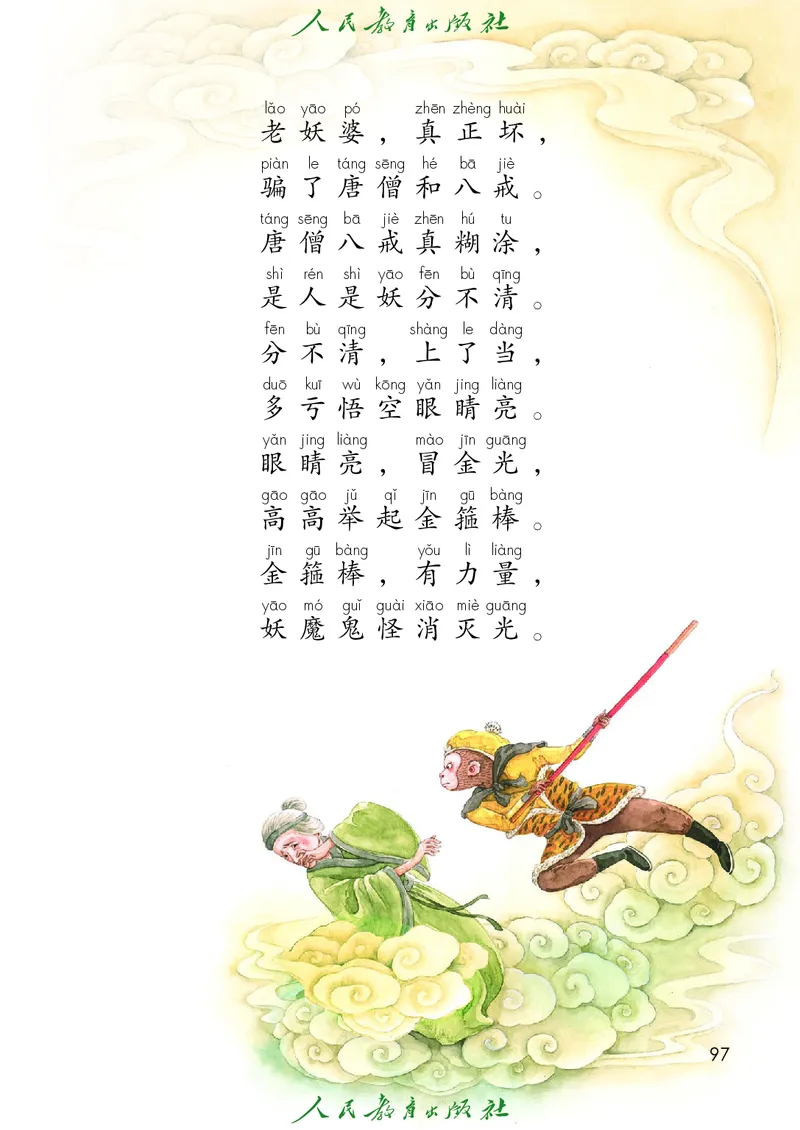 人民教育出版社
lǎo yāo pó zhēn zhèng huài
老妖婆，真正坏，
piàn le táng sēng hé bā jiè
骗了唐僧和八戒。
táng sēng bā jiè zhēn hú tu
唐僧八戒真糊涂，
shì rén shì yāo fēn bù qīng
是人是妖分不清。
fēn bù qīng shàng le dàng
分不清，上了当，
duō kuī wù kōng yǎn jing liàng
多亏悟空眼睛亮。
yǎn jing liàng mào jīn guāng
眼睛亮，冒金光，
gāo gāo jǔ qǐ jīn gū bàng
高高举起金箍棒。
jīn gū bàng yǒu lì liàng
金箍棒，有力量，
yāo mó guǐ guài xiāo miè guāng
妖魔鬼怪消灭光。
97
人民教育出版社